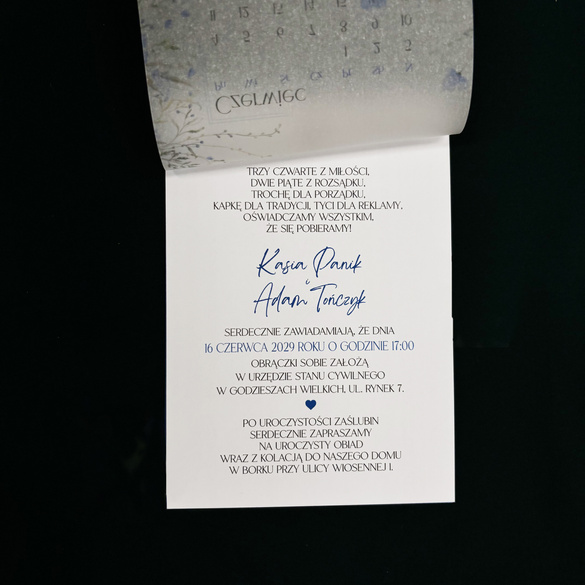 11 12 13 14 15 16 17
4 5 6 7 8 9 10
1 2 3
Pn Wt Śr Cz Pt Sb N
Czerwiec
TRZY CZWARTE Z MIŁOŚCI,
DWIE PIĄTE Z ROZSĄDKU,
TROCHĘ DLA PORZĄDKU,
KAPKĘ DLA TRADYCJI, TYCI DLA REKLAMY,
OŚWIADCZAMY WSZYSTKIM,
ŻE SIĘ POBIERAMY!
Kasia Panik
i
Adam Tończyk
SERDECZNIE ZAWIADAMIAJĄ, ŻE DNIA
16 CZERWCA 2029 ROKU O GODZINIE 17:00
OBRĄCZKI SOBIE ZAŁOŻĄ
W URZĘDZIE STANU CYWILNEGO
W GODZIESZACH WIELKICH, UL. RYNEK 7.
PO UROCZYSTOŚCI ZAŚLUBIN
SERDECZNIE ZAPRASZAMY
NA UROCZYSTY OBIAD
WRAZ Z KOLACJĄ DO NASZEGO DOMU
W BORKU PRZY ULICY WIOSENNEJ 1.